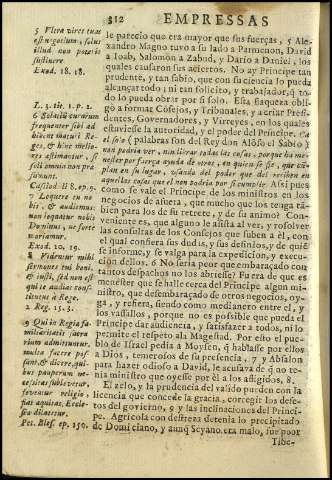 312 EMPRESSAS
5 Ultra vires tuas
est negotium, solus
illud non poteris
sustinere.
Exod. 18. 18.
L. 3. tit. 1. p. 2.
6 Solatiũ curarum
frequenter sibi ad
hibent maturi Re-
ges, & hinc melio-
res æstimantur, si
soli omnia non præ
sumunt.
Casiod. li 8. ep. 9.
7 Loquere tu no-
bis, & audiemus:
non loquatur nobis
Dominus, ne forte
moriamur.
Exod. 20. 19.
8 Videntur mihi
sermones tui boni,
& iusti, sed non est
qui te audiat cons-
titutus à Rege.
2. Reg. 15. 3.
9 Qui in Regiis fa-
miliaritatis sacra-
rium admittuntur,
multa facere pos-
sunt, & dicere, qui-
bus pauperum ne-
cessitas subleuetur,
foveatur religio,
fiat æquitas, Eccle-
sia dilatetur.
Pet. Bles. ep. 150.
le parecio que era mayor que sus fuerças, 5 Ale-
xandro Magno tuvo a su lado a Parmenon, David
a Ioab, Salomon a Zabud, y Dario a Daniel, los
quales causaron sus aciertos. No ay Principe tan
prudente, y tan sabio, que con su ciencia lo pueda
alcançar todo; ni tan solicito, y trabajador, q̃ to-
do lo pueda obrar por si solo. Esta flaqueza obli-
gò a formar Cósejos, y Tribunales, y a criar Presi-
dentes, Governadores, y Virreyes, en los quales
estuviesse la autoridad, y el poder del Principe. Ca
el solo (palabras son del Rey don Alõso el Sabio)
non podria ver, nin librar todas las cosas, porque ha me-
nester por fuerça ayuda de otros, en quien se fie, que cũ-
plan en su lugar, usando del poder que del reciben en
aquellas cosas que el non podria por si cumplir. Assi pues
como se vale el Principe de los ministros en los
negocios de afuera, què mucho que los tenga tã-
bien para los de su retrete, y de su animo? Con-
veniente es, que alguno le assista al ver, y resolver
las consultas de los Consejos que suben a èl, con
el qual confiera sus dudas, y sus desinios, y de quiẽ
se informe, y se valga para la expedicion, y execu-
ciòn dellos. 6 No seria peor que embaraçado con
tantos despachos no los abriesse? Fuera de que es
menester que se halle cerca del Principe algun mi-
nistro, que desembaraçado de otros negocios, oy-
ga, y refiera, siendo como medianero entre el, y
los vassallos, porque no es possible que pueda el
Principe dar audiencia, y satisfazer a todos, ni lo
permite el respeto a la Magestad. Por esto el pue-
blo de Israel pedia a Moysen, q̃ hablasse por ellos
a Dios, temerosos de su presencia, 7 y Absalon
para hazer odioso a David, le acusava de q̃ no te-
nia ministro que oyesse por el a los afligidos. 8.
El zelo, y la prudencia del valido pueden con la
licencia que concede la gracia, corregir los defe-
tos del govierno, 9 y las inclinaciones del Princi-
pe. Agricola con destreza detenia lo precipitado
de Domiciano, y aunq̃ Seyano era malo, fue peor
Tibe-